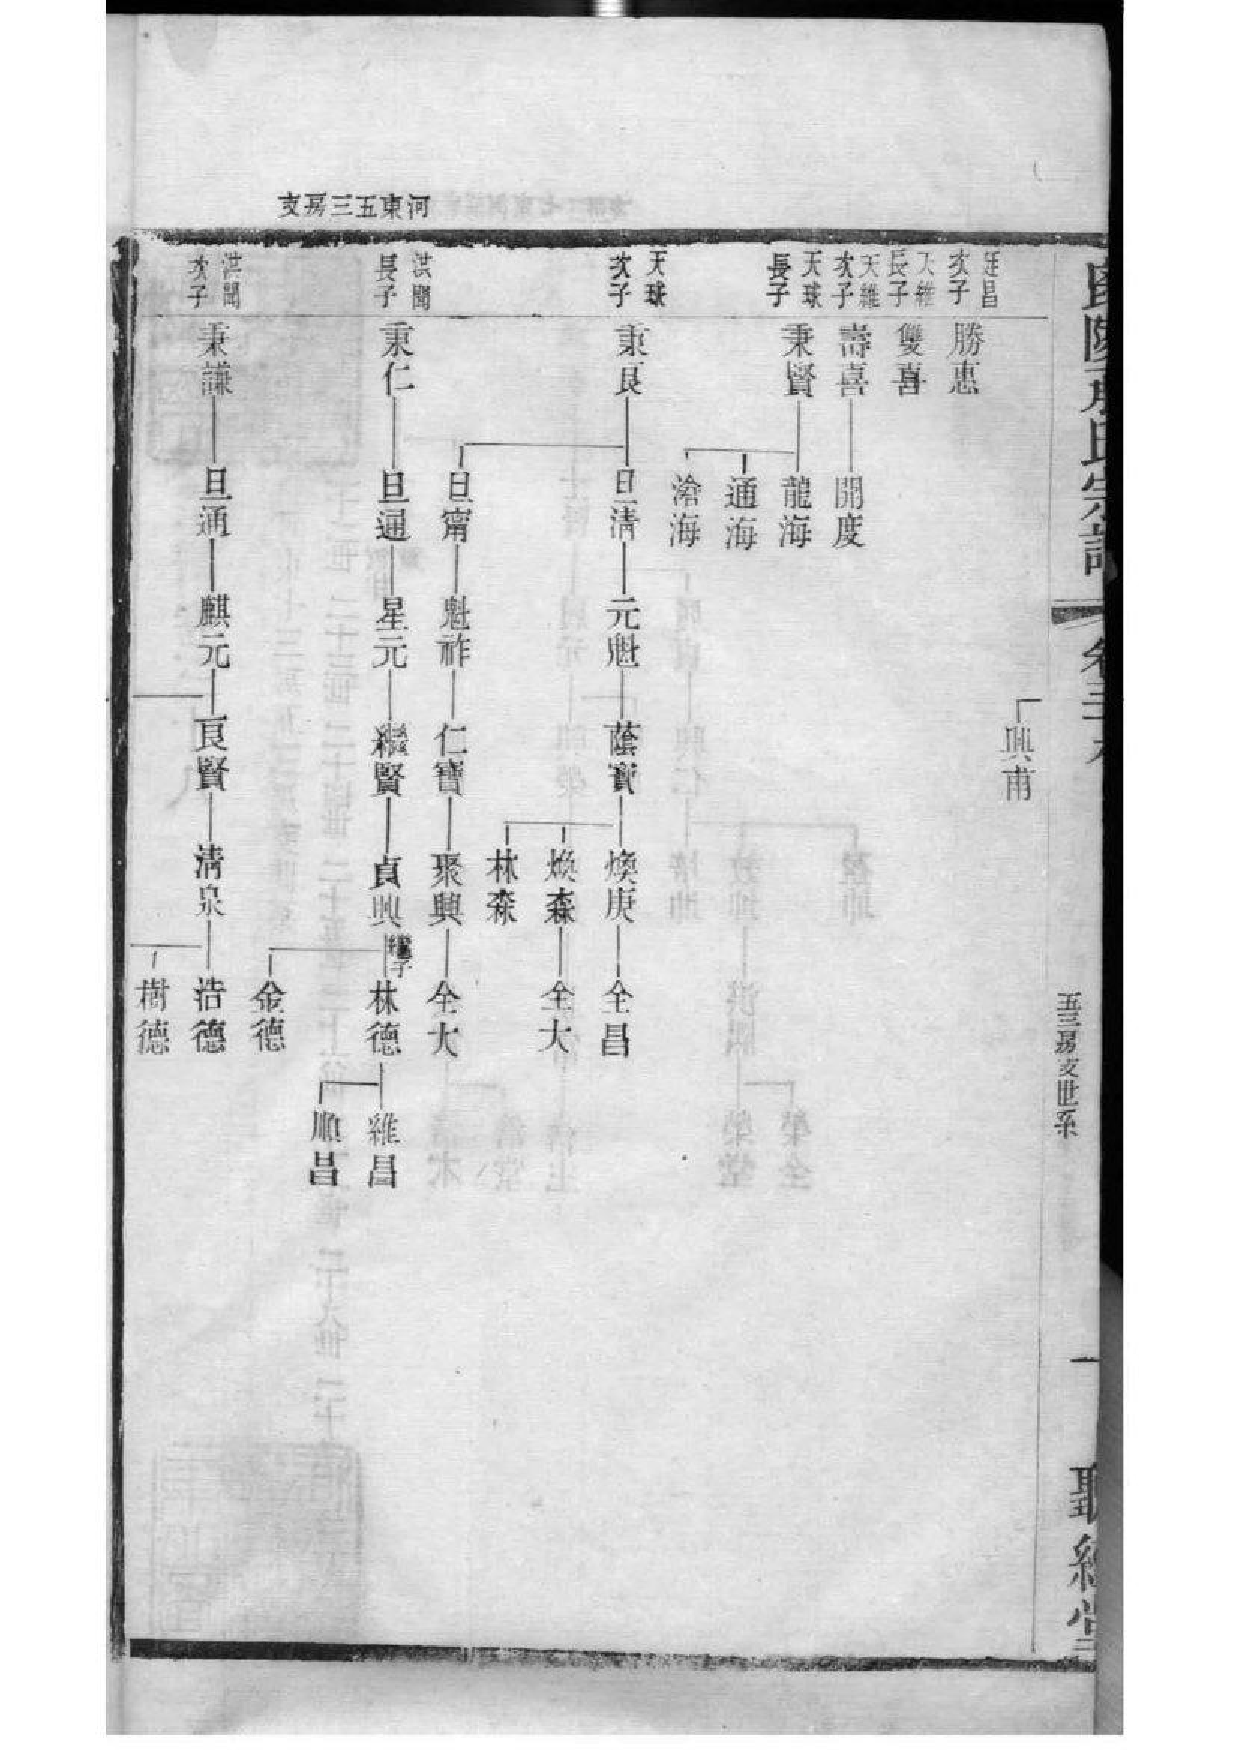 河東五三房支
卷三
五三房支世系
一
聽經堂
興甫
次子
勝惠
天維
長子
雙喜
天維
次子
壽喜
開度
天球
長子
秉賢
龍海
通海
滄海
天球
次子
秉良
旦清
元魁
蔭寶
煥庚
全昌
煥森
全大
林森
旦甯
魁祚
仁寶
聚興
全大
洪聞
長子
秉仁
旦通
星元
繼賢
貞興
繼子
林德
維昌
順昌
金德
洪聞
次子
秉謙
旦通
麒元
良賢
清泉
浩德
樹德